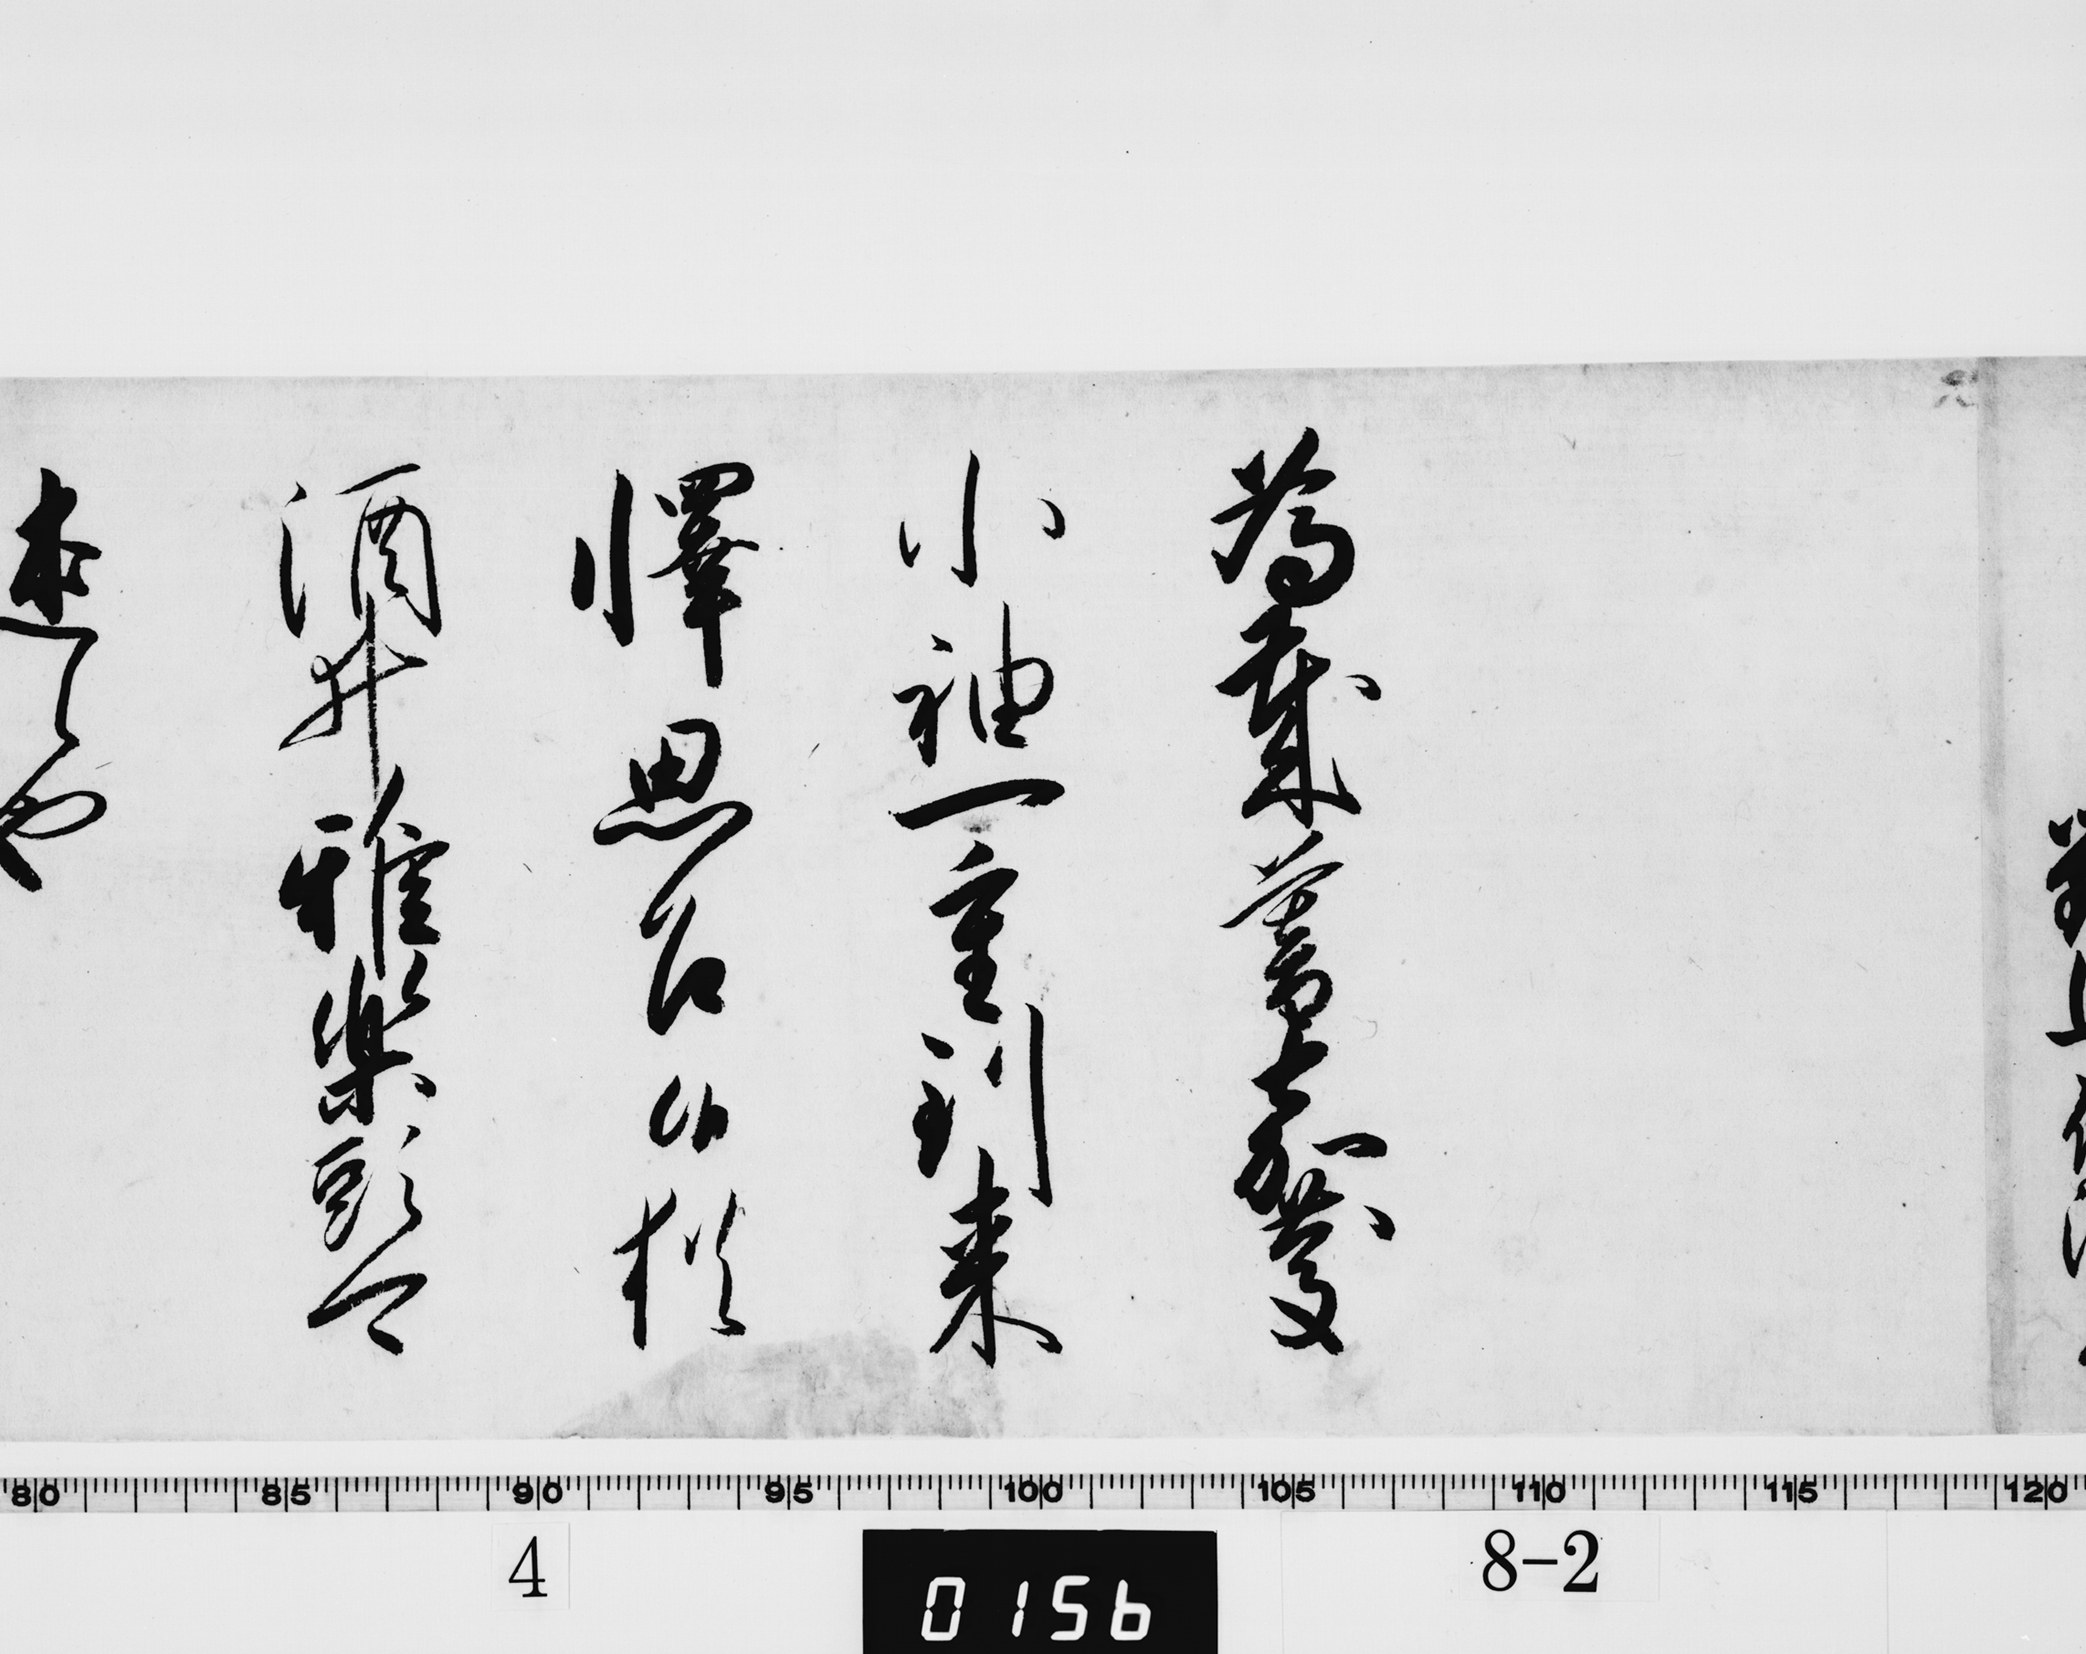 為歳暮之祝儀
小袖一重到来
懌思召候猶
酒井雅楽頭可
述候也
80 85 90 95 100 105 110 115 120
4
0156
8-2